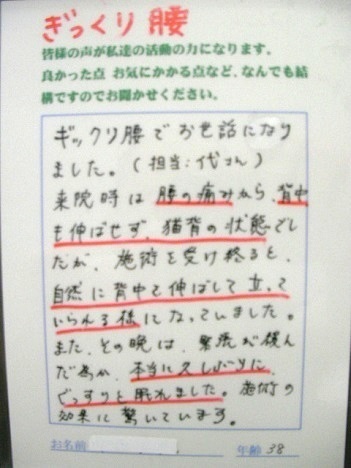 ぎっくり腰
皆様の声が私達の活動の力になります。
良かった点 お気にかかる点など、なんでも結
構ですのでお聞かせください。
ギックリ腰でお世話になり
ました。(担当:代さん)
来院時は腰の痛みから、背中
も伸ばせず、猫背の状態でし
たが、施術を受け終ると、
自然に背中を伸ばして立って
いられる様になっていました。
また、その晩は、緊張が緩ん
だ為か、本当に久しぶりに、
ぐっすりと眠れました。施術の
効果に驚いています。
お名前
年齢 38